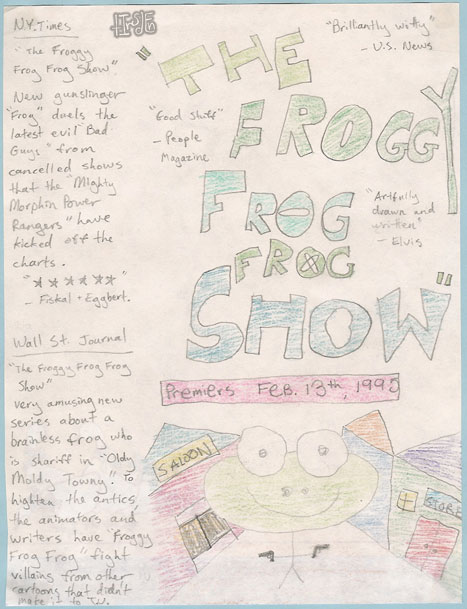 N.Y. Times
"The Froggy
Frog Frog Show".
New gunslinger
"Frog" duels the
latest evil "Bad
Guys" from
cancelled shows
that the "MIghty
Morphin Power
Rangers" have
kicked off the
charts.
"☆☆☆☆☆☆"
- Fiskal + Eggbert.
Wall St. Journal
"The Froggy Frog Frog
Show"
very amusing new
series about a
brainless frog who
is shariff in "Oldy
Moldy Towny". To
highten the antics,
the animators and
writers have "Froggy
Frog Frog" fight
villains from other
cartoons that didn't
make it to T.V.
"Brilliantly witty"
- U.S. News
"Good stuff"
- People
Magazine
"Artfully
drawn and
written"
- Elvis
"THE
FROGGY
FROG
FROG
SHOW"
Premiers FEB. 13th, 1995
SALOON
STORE